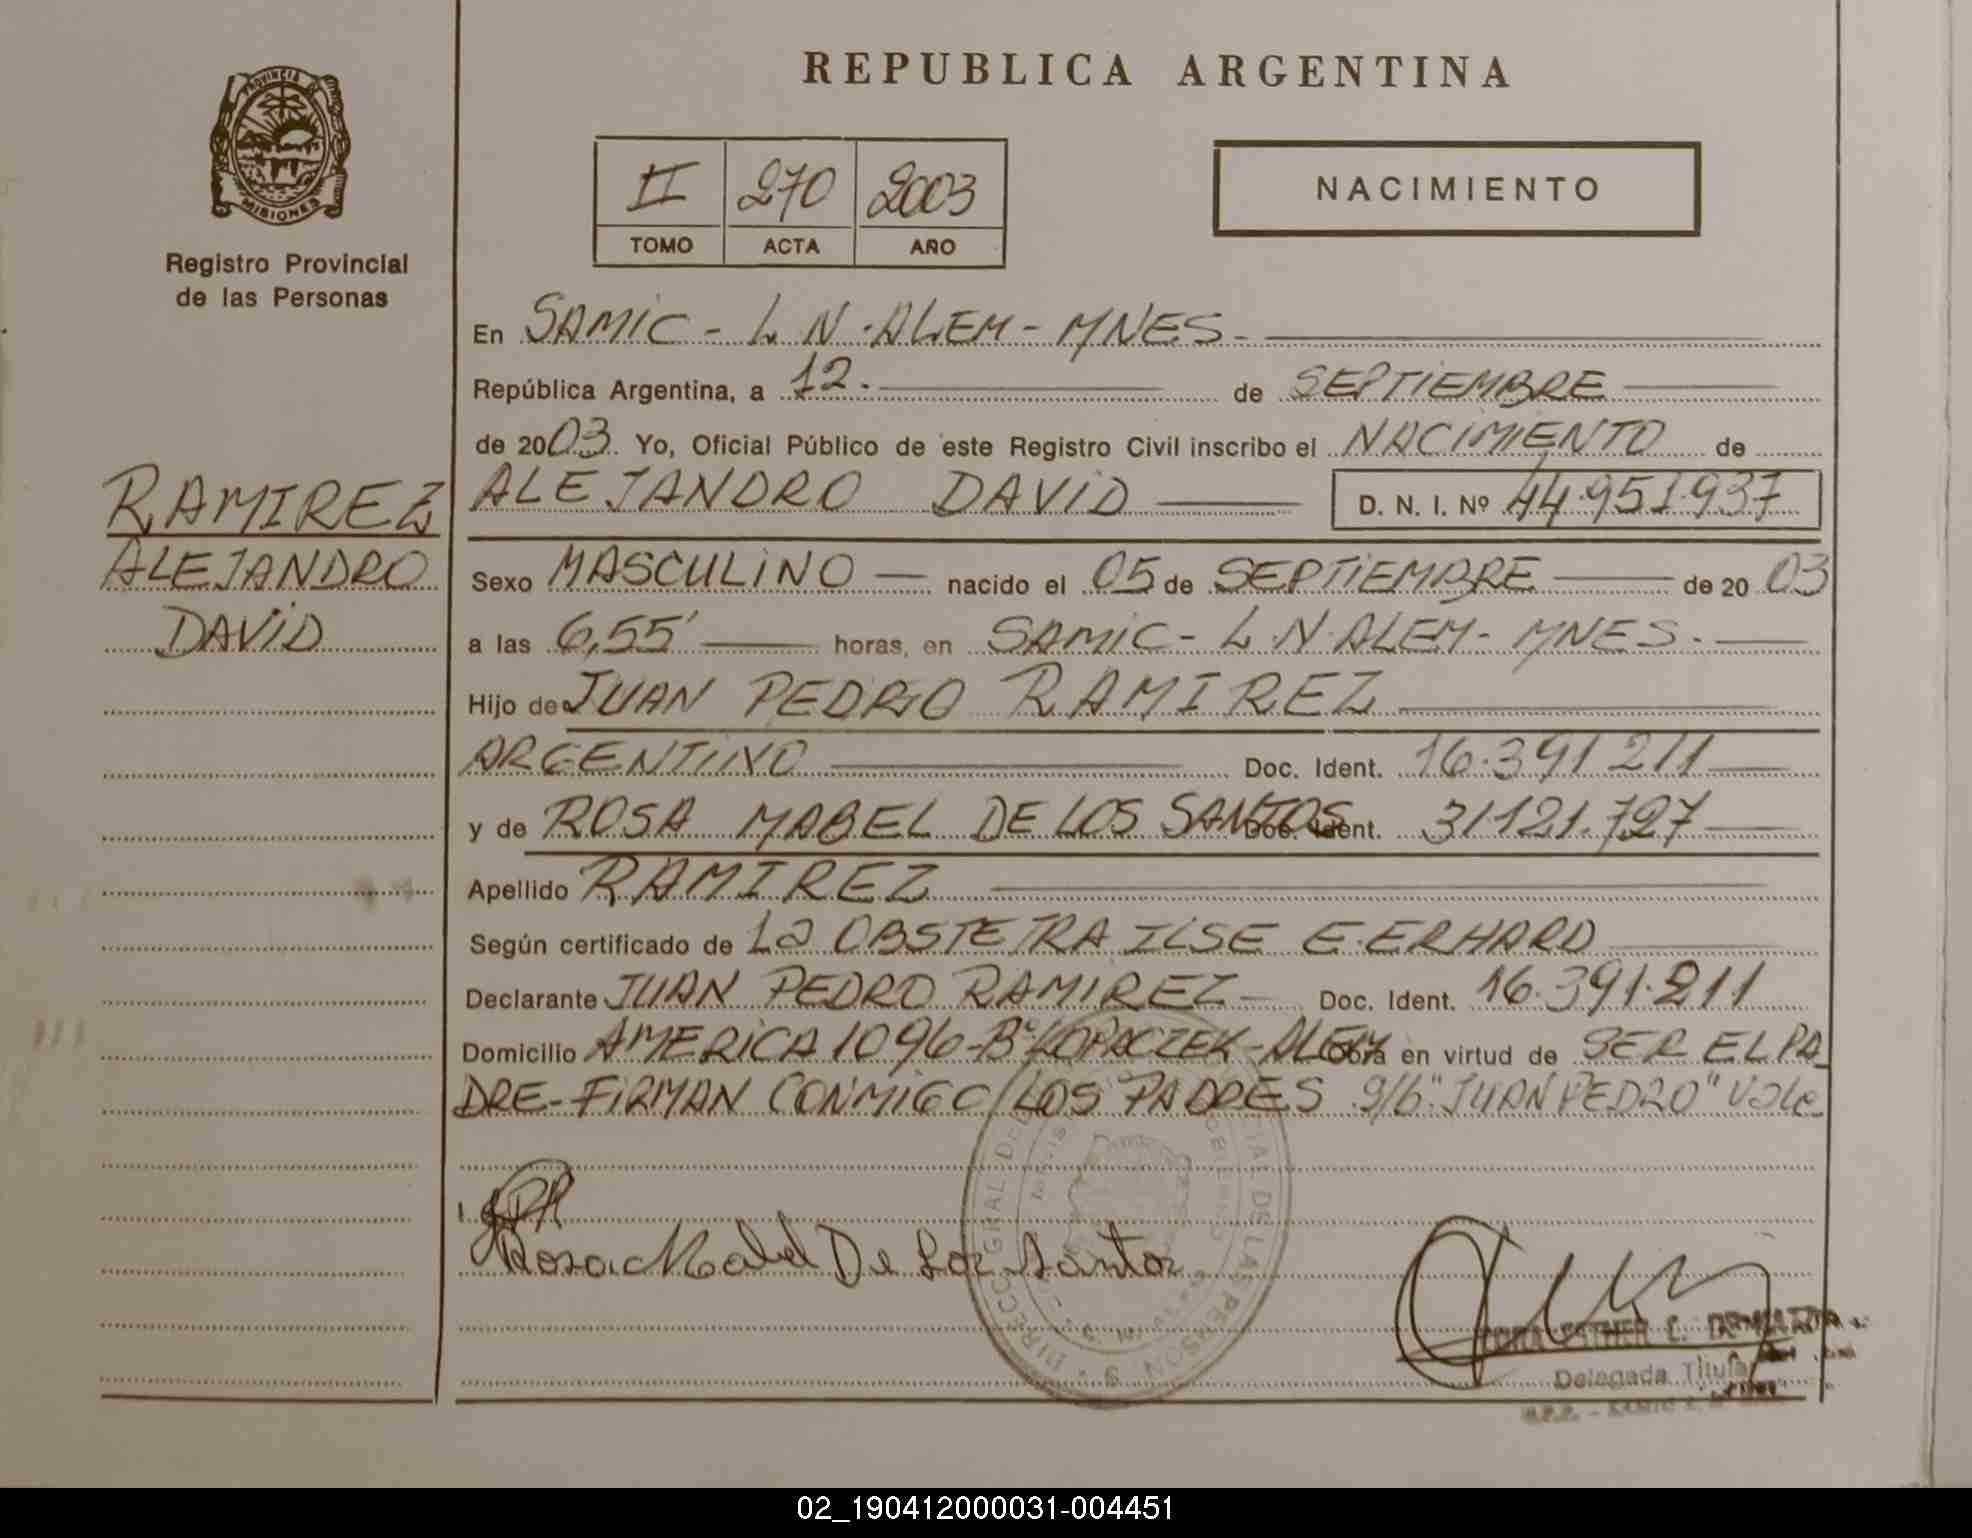 REPUBLICA ARGENTINA
PROVINCIA DE
MISIONES
Registro Provincial
de las Personas
II 270 2003
TOMO ACTA AÑO
NACIMIENTO
En SAMIC - L. N. ALEM - MNES -
República Argentina, a 12. de SEPTIEMBRE
de 2003. Yo, Oficial Público de este Registro Civil inscribo el NACIMIENTO de
ALEJANDRO DAVID D. N. I. Nº 44.951.937
RAMIREZ
ALEJANDRO
DAVID
Sexo MASCULINO nacido el 05 de SEPTIEMBRE de 2003
a las 6,55' horas, en SAMIC - L. N. ALEM - MNES.
Hijo de JUAN PEDRO RAMIREZ
ARGENTINO Doc. Ident. 16.391.211
y de ROSA MABEL DE LOS SANTOS Doc. Ident. 31.121.727
Apellido RAMIREZ
Según certificado de La OBSTETRA ILSE E. ERHARD
Declarante JUAN PEDRO RAMIREZ - Doc. Ident. 16.391.211
Domicilio AMERICA 1096 - Bº KOPACZEK - ALEM Obra en virtud de SER EL PA
DRE - FIRMAN CONMIGO LOS PADRES S/b "JUAN PEDRO" Vale
Rosa Mabel De Los Santos
ESTHER
Delegada Titular
02_190412000031-004451